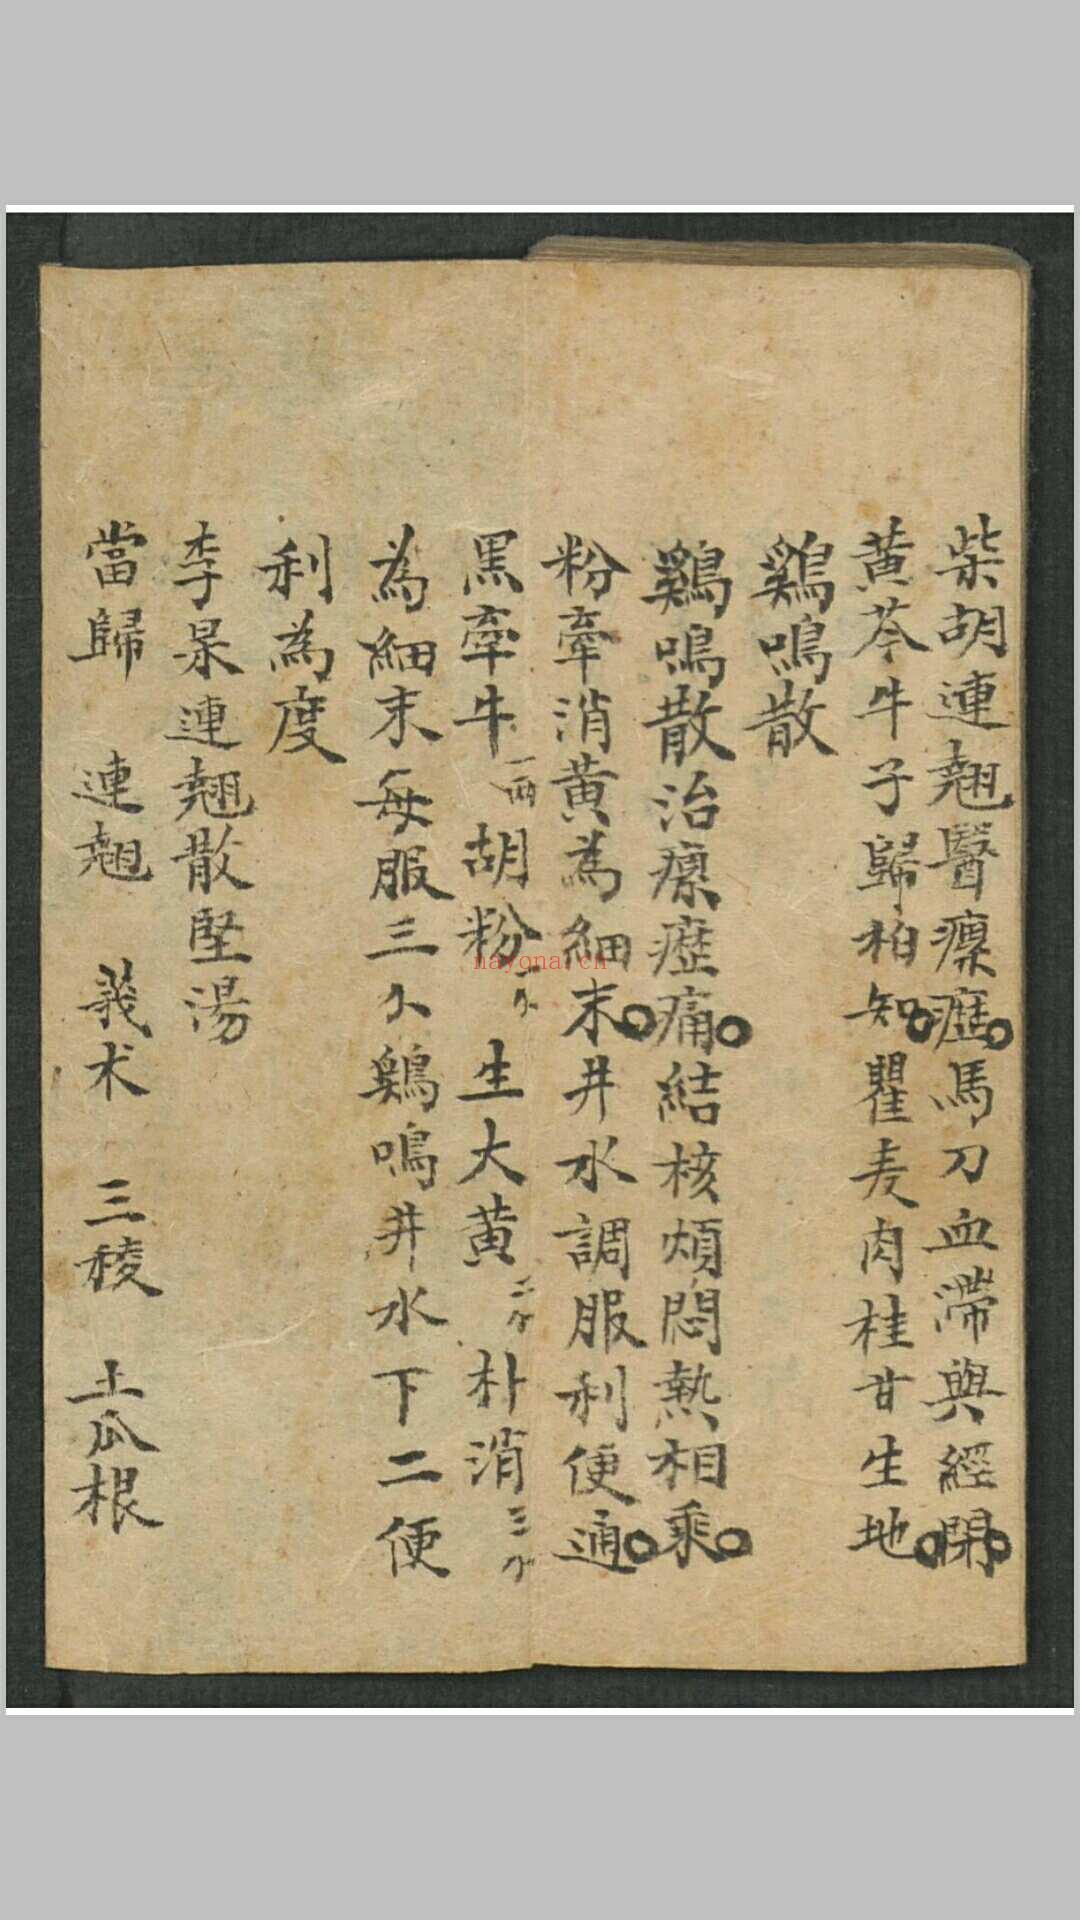 柴胡連翹醫瘰癧馬刀血滯與經閉
黄芩牛子歸柏知瞿麦肉桂甘生地
鷄鳴散
鷄鳴散治瘰癧痛結核煩悶熱相乘
粉牽消黄為細末井水調服利便通
黑牽牛一兩胡粉一仒生大黄二仒朴消三仒
為細末每服三仒鷄鳴井水下二便
利為度
李杲連翹散堅湯
當歸 連翹 莪术 三稜 土瓜根
nayona.cn